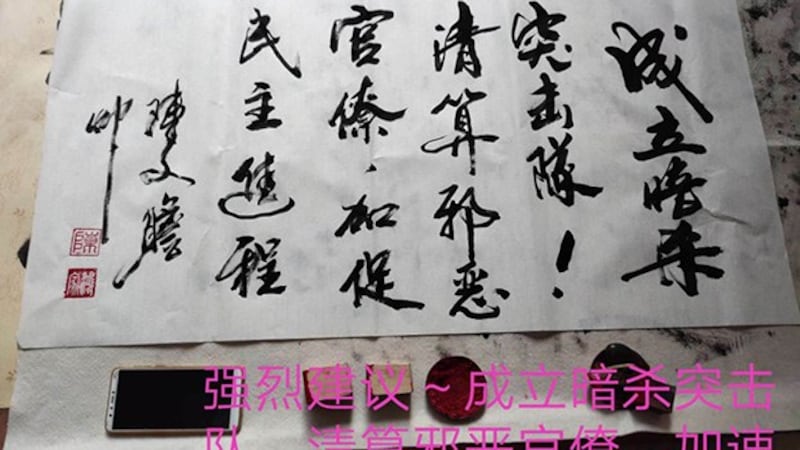 成立暗杀
突击隊！
清算邪恶
官僚、加促
民主進程
叩
强烈建议～成立暗杀突击
队 清算邪恶官僚 加速